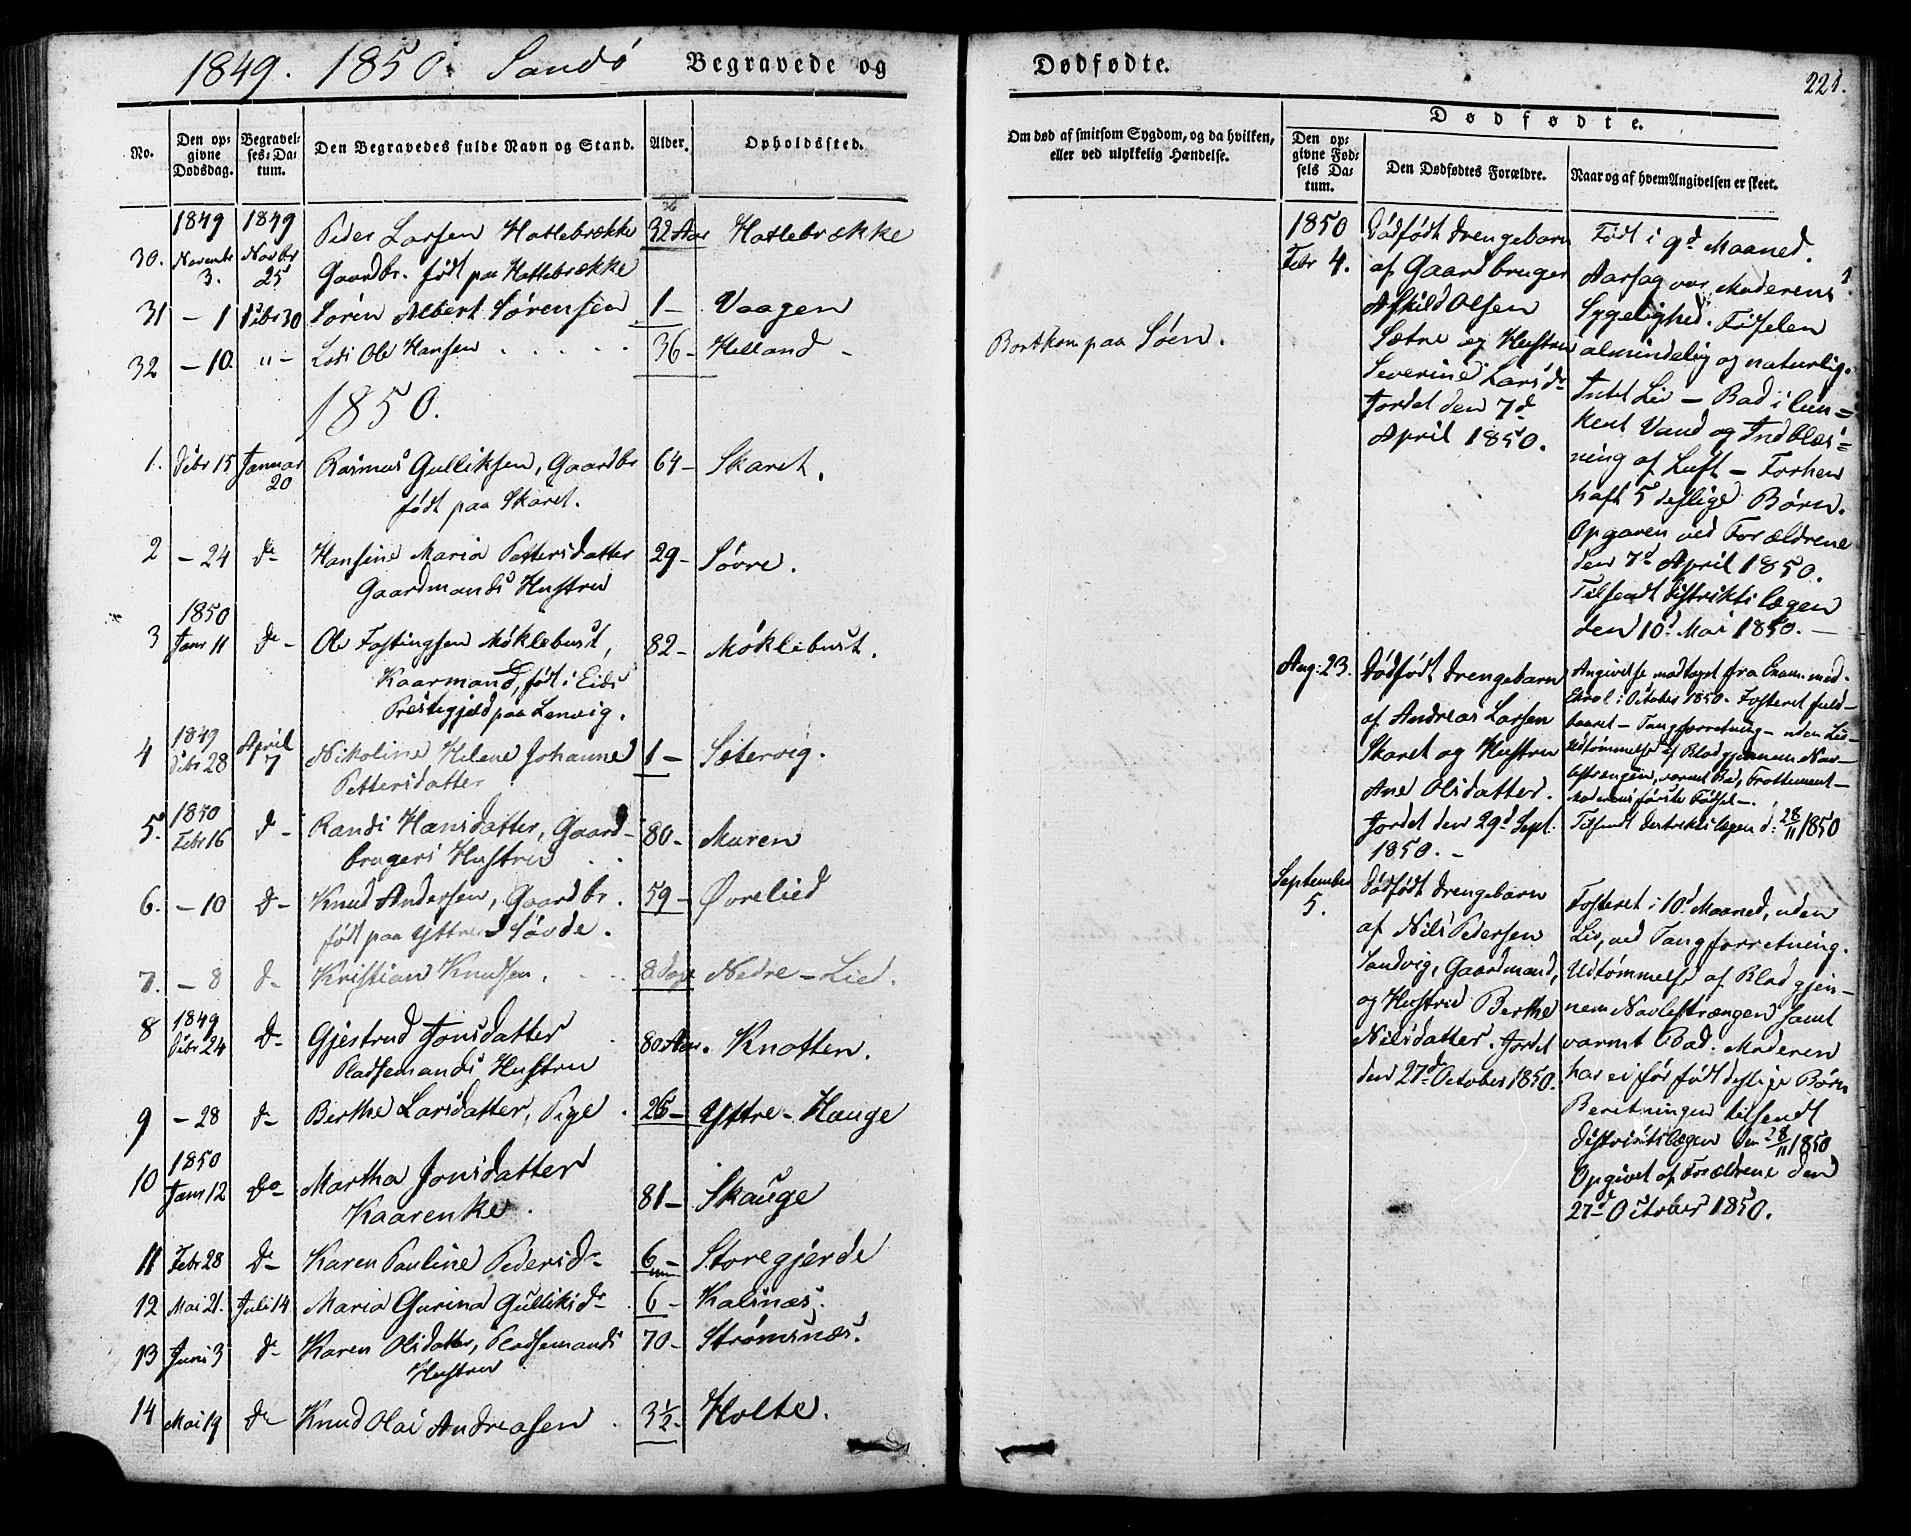 1849. 1850. Sandø Begravede og
No.
Den op-
givne
Dødsdag.
Begravel-
ses-Da-
tum.
Den Begravedes fulde Navn og Stand.
Alder.
Opholdssted.
30. 1849 Novembr 3. 1849 Novbr 25 Peder Larsen Hatlebrække 32 Aar Hatlebrække
Gaardbr. født paa Hatlebrække
31 — 1 Decbr 30 Søren Albert Sørensen 1 — Vaagen
32 — 10. " — Ole Hansen 36 — Helland — Bortkom paa Søen.
1850.
1. Decbr 15 Januar 20 Rasmus Gulliksen, Gaardbr 64 — Skaret.
født paa Skaret.
2 — 24 do Hansine Maria Pettersdatter 29 — Søvre.
Gaardmands Hustru
3 1850 Janr 11 do — Ole Fastingsen Møklebust, 82 — Møklebust.
Kaarmand, født i Eids
Præstegjeld paa Lenvig.
4 1849 Decbr 28 April 7 Nikoline Helene Johanne 1 — Sætervig.
Pettersdatter
5. 1850 Febr 16 do — Randi Hansdatter, Gaard- 80 — Muren
brugers Hustru
6. — 10 do — Knud Andersen, Gaardbr. 59 — Ørelied
født paa Yttre Søvde.
7. — 8 do — Kristian Knudsen. 8 Dage Nedre-Lied.
8 1849 Decbr 24 do — Gjestrud Jonsdatter 80 Aar. Knotten.
Pladsemands Hustru
9 — 28 do — Berthe Larsdatter, Pige 26 — Yttre-Hauge
10 1850 Janr 12 do — Martha Jonsdatter 81 — Skauge
Kaarenke.
11 Febr 28 do — Karen Pauline Pedersdr 6 — Storegjerde
12 Mai 21. Juli 14 Maria Gurina Gulliksdr 6 — Kalsnæs.
13 Juni 3 do — Karen Olsdatter, Pladsemands 70 — Strømsnæs.
Hustru
14 Mai 19 do — Knud Olai Andreasen 3½ — Holte.
Dødfødte.
221.
Om død af smitsom Sygdom, og da hvilken,
eller ved ulykkelig Hændelse.
Dødfødte.
Den op-
givne Fød-
sels Da-
tum.
Den Dødfødtes Forældre.
Naar og af hvem Angivelsen er skeet.
1850
Febr 4.
Dødfødt Drengebarn
af Gaardbruger
Askild Olsen
Sætre og Hustru
Severine Larsdr
Jordet den 7d
April 1850.
Født i 9d Maaned.
Aarsag var Moderens
Sygelighed. Fødselen
almindelig og naturlig.
Intet Liv — Bad i lun-
kent Vand og Indblæs-
ning af Luft — Forhen
haft 5 deslige Børn.
Opgaven ved Forældrene
den 7d April 1850.
Tilsendt Distriktslægen
den 10d Mai 1850. —
Aug: 23.
Dødfødt Drengebarn
af Andreas Larsen
Skaret og Hustru
Ane Olsdatter.
Jordet den 29d Sept.
1850. —
Angivelse modtaget fra Exam. med.
i October 1850. Fosteret fuld-
baaret — Tangforretning — uden Liv —
Udtømmelse af Blod gjennem Nav-
lestrængen, varmt Bad, Frottement —
Moderens første Fødsel —.
Tilsendt Distriktslægen d: 28/11 1850
September
5.
Dødfødt Drengebarn
af Nils Pedersen
Sandvig, Gaardmand,
og Hustrue Berthe
Nilsdatter. Jordet
den 27d October 1850.
Fosteret i 10d Maaned, uden
Liv, ved Tangforretning.
Udtømmelse af Blod gjen-
nem Navlestrængen samt
varmt Bad. Moderen
har ei før født deslige Børn
Beretningen tilsendt
Distriktslægen den 28/11 1850
Opgivet af Forældrene den
27d October 1850.